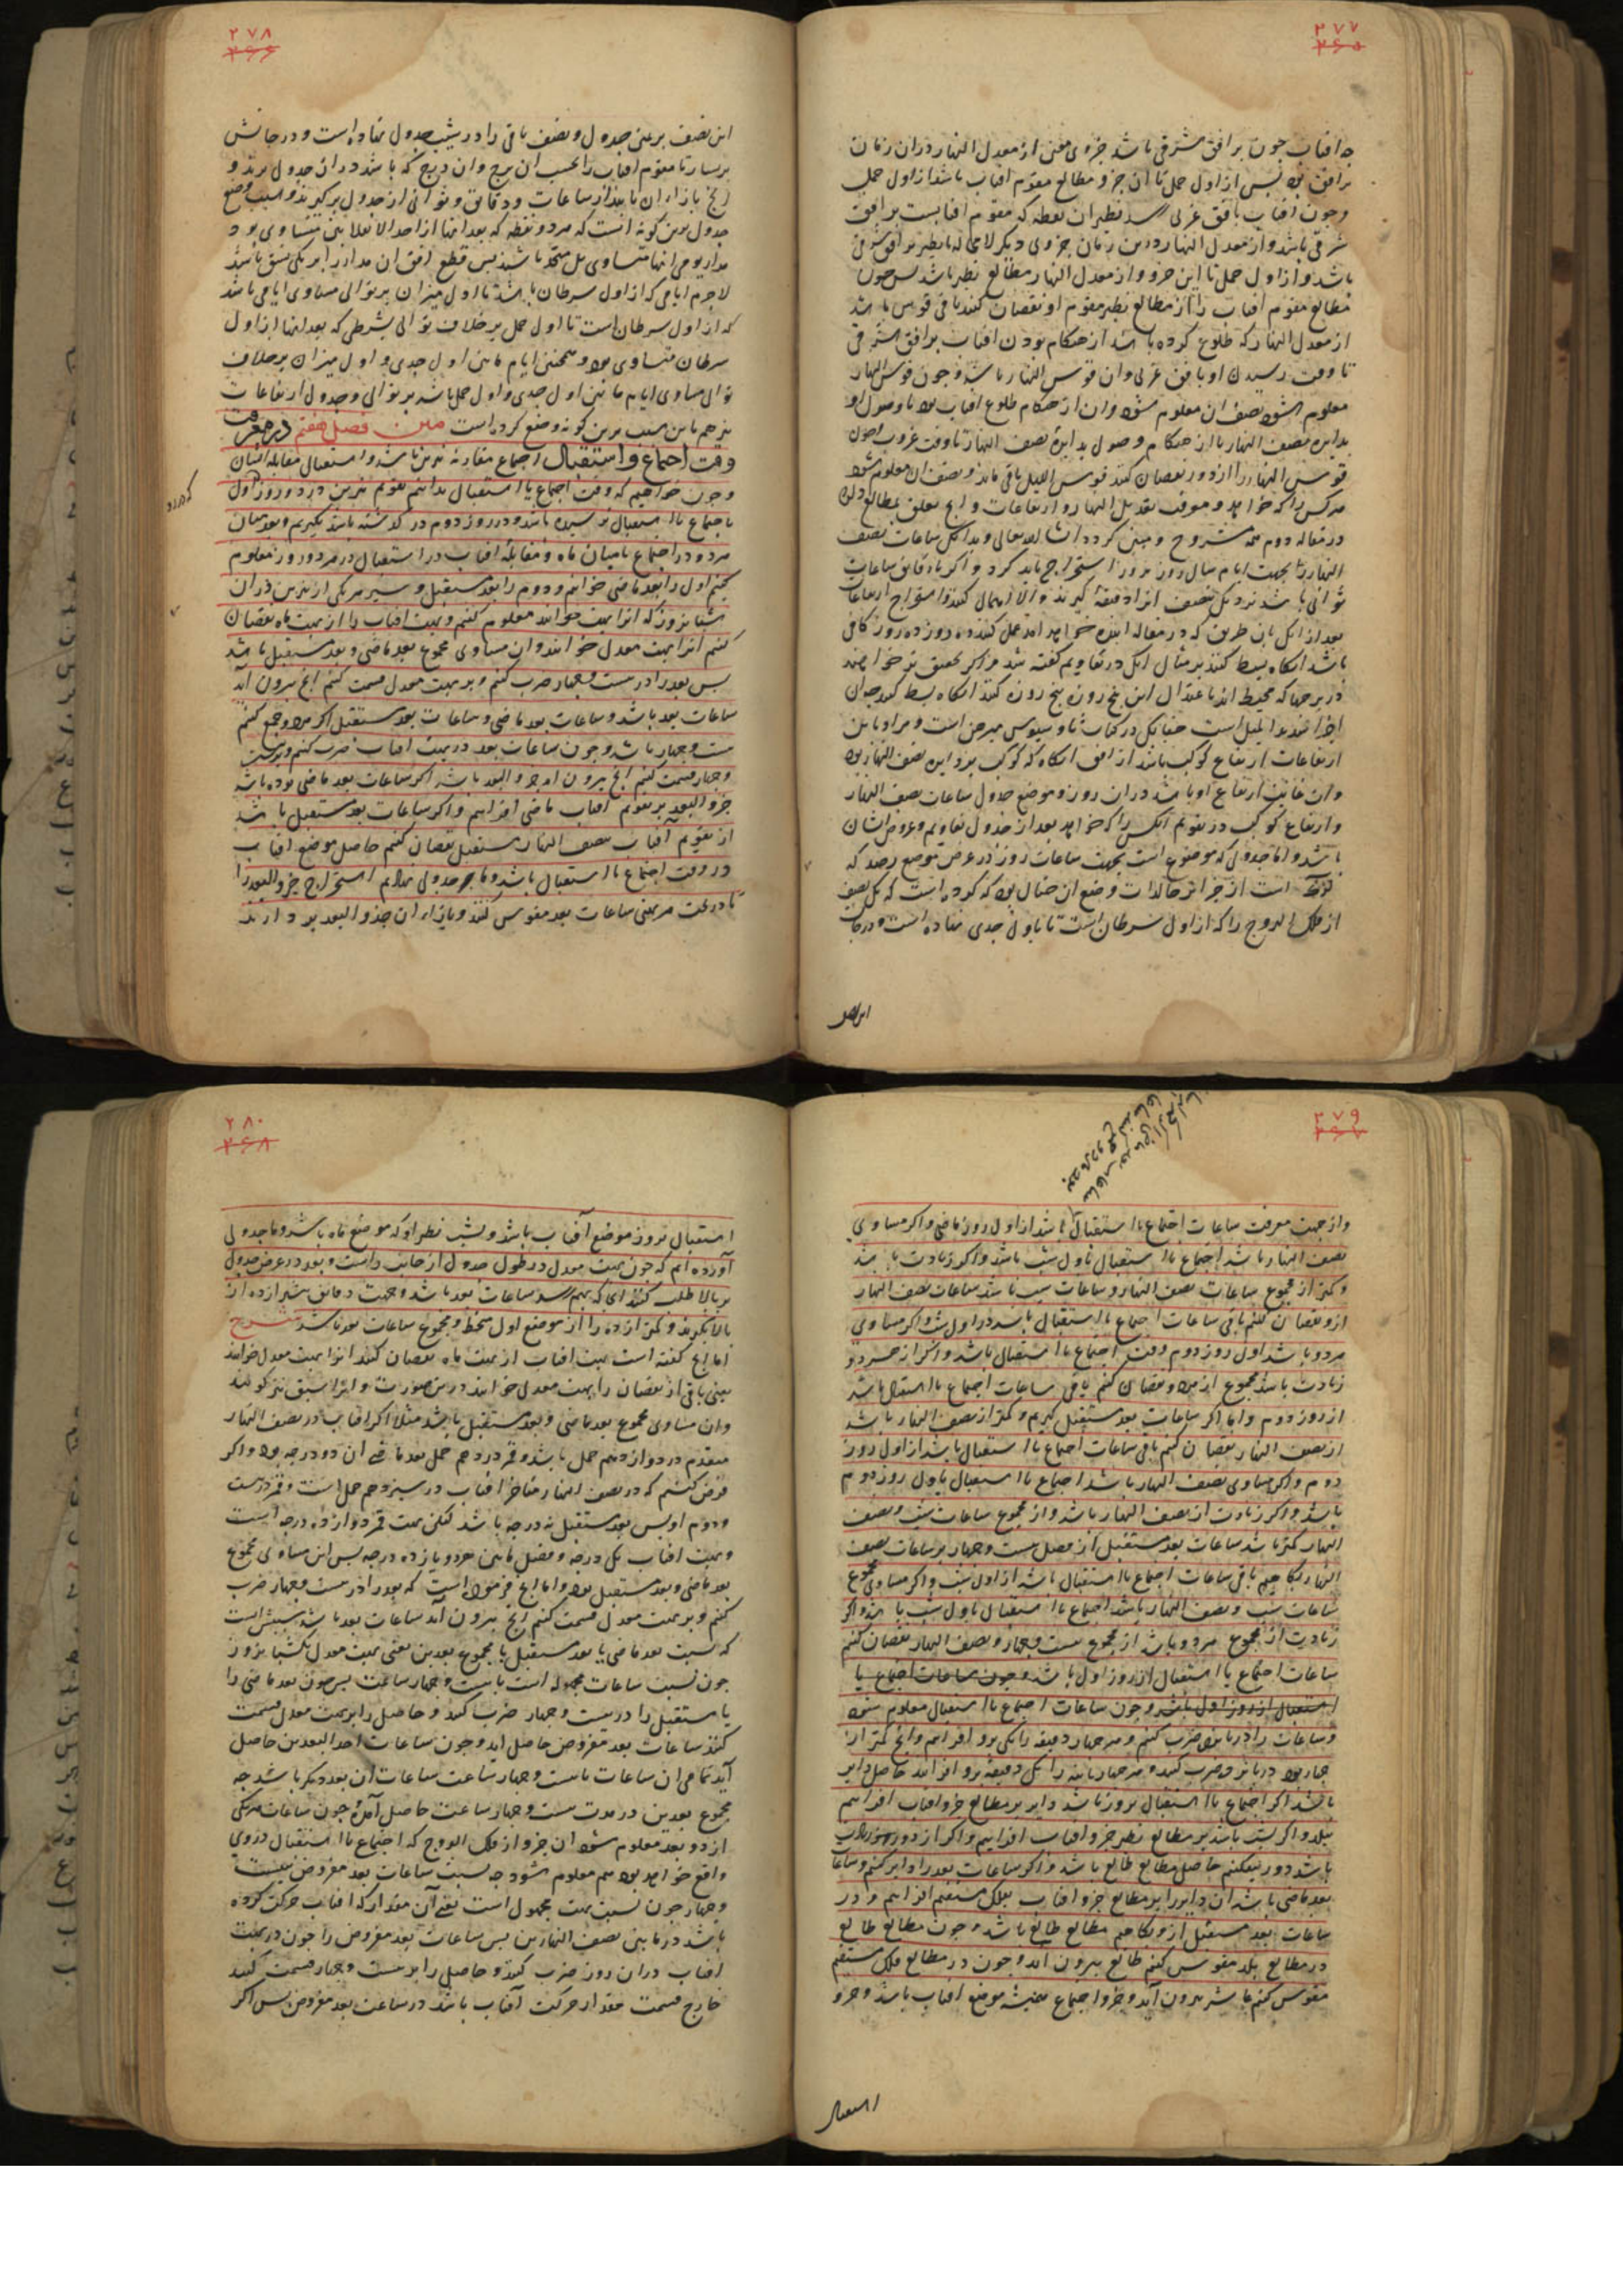 ۲۷۷
۲۶۵
چه افتاب چون بر افق مشرقی باشد جزوی معین از معدل النهار در ان زمان
بر افق بود پس از اول حمل تا ان جزو مطالع مقوم افتاب باشد از اول حمل
و چون افتاب بافق غربی رسد نظیر ان نقطه که مقوم افتابست بر افق
شرقی باشد و از معدل النهار درین زمان جزوی دیکر لامحاله با نظیر بر افق شرقی
باشد و از اول حمل تا این جزو از معدل النهار مطالع نظیر باشد پس چون
مطالع مقوم افتاب را از مطالع نظیر مقوم او نقصان کنند باقی قوسی باشد
از معدل النهار که طلوع کرده باشد از هنکام بودن افتاب بر افق شرقی
تا وقت رسیدن او بافق غربی و ان قوس النهار باشد و چون قوس النهار
معلوم شود نصف ان معلوم شود و ان از هنکام طلوع افتاب بود تا وصول او
بدایره نصف النهار یا از هنکام وصول بدایره نصف النهار تا وقت غروب و چون
قوس النهار را از دور نقصان کنند قوس اللیل باقی ماند و نصف ان معلوم شود
هر کس را که خواهد و معرفت تعدیل النهار و ارتفاعات و انچ تعلق بمطالع دارد
در مقاله دوم مشروح و مبین کردد انشا الله تعالی و بدانکه ساعات نصف
النهار را بجهت ایام سال روز بروز استخراج باید کرد و اکر با دقایق ساعات
ثوانی باشد نزدیک بنصف انرا دقیقه کیرند و الا اهمال کنند و استخراج ارتفاعات
بعد از انک بان طریق که در مقاله اینده خواهد امد عمل کنند ده روز ده روز کافی
باشد انکاه بسط کنند بر مثال انک در تقاویم کفته شد و اکر تحقیق تر خواهند
در برجها که محیط اند باعتدال این پنج روز پنج روز کنند انکاه بسط کنند چه ان
اجزا شدید المیل است چنانک در کتاب ثاوذوسیوس مبرهن است و مراد باین
ارتفاعات ارتفاع کوکب باشد از افق انکاه که کوکب بر دایره نصف النهار بود
و ان غایت ارتفاع او باشد در ان روز و موضع جدول ساعات نصف النهار
و ارتفاع کوکب در تقویم انکس را که خواهد بعد از جدول تقاویم و عروض ایشان
باشد و اما جدولی که موضوع است بجهت ساعات روز در عرض موضع رصد که
است از جزایر خالدات وضع ان چنان بود که کرده است که یک نصف
از فلک البروج را که از اول سرطان است تا باول جدی نهاده است و درجات
این نصف
۲۷۸
۲۶۶
این نصف بر یمین جدول و نصف باقی را در شیب جدول نهاده است و درجاتش
بر یسار تا مقوم افتاب را بحسب ان برج و ان درج که باشد در ان جدول برند و
انچ بازاء ان یابند از ساعات و دقایق و ثوانی از جدول برکیرند و سبب وضع
جدول برین کونه انست که هر دو نقطه که بعد انها از احد الانقلابین متساوی بود
مدار یومی انها متساوی بل متحد باشد پس قطع افق ان مدار را بر یکی نسق باشد
لاجرم ایامی که از اول سرطان باشد تا اول میزان بر توالی مساوی ایامی باشد
که از اول سرطان است تا اول حمل بر خلاف توالی بشرطی که بعد انها از اول
سرطان متساوی بود و همچنین ایام مابین اول جدی و اول میزان بر خلاف
توالی مساوی ایام مابین اول جدی و اول حمل باشد بر توالی و جدول ارتفاعات
نیز هم باین سبب برین کونه وضع کرده است متن فصل هفتم در معرفت
وقت اجتماع و استقبال اجتماع مقارنه نیرین باشد و استقبال مقابله ایشان
و چون خواهیم که وقت اجتماع یا استقبال بدانیم تقویم نیرین در دو روز اول
باجتماع یا استقبال نرسیده باشد و در روز دوم در کذشته باشد بکیریم و بعد میان
هر دو در اجتماع یا میان ماه و مقابله افتاب در استقبال در هر دو روز معلوم
کنیم اول را بعد ماضی خوانیم و دوم را بعد مستقبل و سیر هر یکی از نیرین در ان
شبانروز که انرا بهت خوانند معلوم کنیم و بهت افتاب را از بهت ماه نقصان
کنیم انرا بهت معدل خوانند و ان مساوی مجموع بعد ماضی و بعد مستقبل باشد
پس بعد را در بیست و چهار ضرب کنیم و بر بهت معدل قسمت کنیم انچ بیرون اید
ساعات بعد باشد و ساعات بعد ماضی و ساعات بعد مستقبل اکر هر دو جمع کنیم
بیست و چهار باشد و چون ساعات بعد در بهت افتاب ضرب کنیم و بر بیست
و چهار قسمت کنیم انچ بیرون اید جزو البعد باشد اکر ساعات بعد ماضی بوده باشد
جزو البعد بر تقویم افتاب ماضی افزاییم و اکر ساعات بعد مستقبل باشد
از تقویم آفتاب نصف النهار مستقبل نقصان کنیم حاصل موضع افتاب
در وقت اجتماع یا استقبال باشد و ما جدولی نهادیم استخراج جزو البعد را
تا در تحت هر بهتی ساعات بعد مقوس کنند و بازاء ان جزو البعد بردارند
۲۷۹
۲۶۷
و از جهت معرفت ساعات اجتماع یا استقبال باشد از اول روز ماضی و اکر مساوی
نصف النهار باشد اجتماع یا استقبال باول شب باشد و اکر زیادت باشد
و کمتر از مجموع ساعات نصف النهار و ساعات شب باشد ساعات نصف النهار
ازو نقصان کنیم باقی ساعات اجتماع یا استقبال باشد از اول شب و اکر مساوی
هر دو باشد اول روز دوم وقت اجتماع یا استقبال باشد و اکر از هر دو
زیادت باشد مجموع از هر دو نقصان کنیم باقی ساعات اجتماع یا استقبال باشد
از روز دوم و اما اکر ساعات بعد مستقبل کیریم و کمتر از نصف النهار باشد
از نصف النهار نقصان کنیم باقی ساعات اجتماع یا استقبال باشد از اول روز
دوم و اکر مساوی نصف النهار باشد اجتماع یا استقبال باول روز دوم
باشد و اکر زیادت از نصف النهار باشد و از مجموع ساعات شب و نصف
النهار کمتر باشد ساعات بعد مستقبل از فضل بیست و چهار بر ساعات نصف
النهار بکاهیم باقی ساعات اجتماع یا استقبال باشد از اول شب و اکر مساوی مجموع
ساعات شب و نصف النهار باشد اجتماع یا استقبال باول شب باشد و اکر
زیادت از مجموع هر دو باشد از مجموع بیست و چهار و نصف النهار نقصان کنیم
ساعات اجتماع یا استقبال از روز اول باشد و چون ساعات اجتماع یا
استقبال از روز اول باشد و چون ساعات اجتماع یا استقبال معلوم شود
و ساعات را در پانزده ضرب کنیم و هر چهار دقیقه را یکی برو افزاییم و انچ کمتر از
چهار بود در پانزده ضرب کنند و هر چهار ثانیه را یک دقیقه برو افزایند حاصل دایر
باشد اکر اجتماع یا استقبال بروز باشد دایر بر مطالع جزو افتاب افزاییم
ببلد و اکر بشب باشد بر مطالع نظیر جزو افتاب افزاییم و اکر از دور زیادت
باشد دور بیفکنیم حاصل مطالع طالع باشد و اکر ساعات بعد را دایر کنیم و ساعات
بعد ماضی باشد ان دایر را بر مطالع جزو افتاب بفلک مستقیم افزاییم و در
ساعات بعد مستقبل ازو بکاهیم مطالع طالع باشد و چون مطالع طالع
در مطالع بلد مقوس کنیم طالع بیرون اید و چون در مطالع فلک مستقیم
مقوس کنیم عاشر بیرون آید و جزو اجتماع بعینه موضع افتاب باشد و جزو
استقبال
۲۸۰
۲۶۸
استقبال بروز موضع آفتاب باشد و بشب نظیر او که موضع ماه باشد و ما جدولی
آورده ایم که چون بهت معدل در طول جدول از جانب راست و بعد در عرض جدول
بر بالا طلب کنند انجا که بهم رسد ساعات بعد باشد و بجهت دقایق بیشتر از ده از
بالا بکیرند و کمتر از ده را از موضع اول منحط و مجموع ساعات بعد باشد شرح
اما انچ کفته است بهت افتاب از بهت ماه نقصان کنند انرا بهت معدل خوانند
یعنی باقی از نقصان را بهت معدل خوانند درین صورت و انرا سبق نیز کویند
و ان مساوی مجموع بعد ماضی و بعد مستقبل باشد مثلا اکر افتاب در نصف النهار
متقدم در دوازدهم حمل باشد و قمر در دهم حمل بعد ماضی ان دو درجه بود و اکر
فرض کنیم که در نصف النهار متاخر افتاب در سیزدهم حمل است و قمر در بیست
و دوم او پس بعد مستقبل نه درجه باشد لیکن بهت قمر دوازده درجه است
و بهت افتاب یک درجه و فضل مابین هر دو یازده درجه پس این مساوی مجموع
بعد ماضی و بعد مستقبل بود و اما انچ فرموده است که بعد را در بیست و چهار ضرب
کنیم و بر بهت معدل قسمت کنیم انچ بیرون آید ساعات بعد باشد سببش انست
که نسبت بعد ماضی یا بعد مستقبل با مجموع بعدین یعنی بهت معدل یکشبانروز
چون نسبت ساعات مجهوله است با بیست و چهار ساعت پس چون بعد ماضی را
یا مستقبل را در بیست و چهار ضرب کنند و حاصل را بر بهت معدل قسمت
کنند ساعات بعد مفروض حاصل اید و چون ساعات احد البعدین حاصل
آید تمامی ان ساعات تا بیست و چهار ساعت ساعات ان بعد دیکر باشد چه
مجموع بعدین در مدت بیست و چهار ساعت حاصل آمده چون ساعات هر یکی
از دو بعد معلوم شود ان جزو از فلک البروج که اجتماع یا استقبال در وی
واقع خواهد بود هم معلوم شود چه نسبت ساعات بعد مفروض با بیست
و چهار چون نسبت بهت مجهول است یعنی آن مقدار که افتاب حرکت کرده
باشد در مابین نصف النهارین پس ساعات بعد مفروض را چون در بهت
افتاب در ان روز ضرب کنند و حاصل را بر بیست و چهار قسمت کنند
خارج قسمت مقدار حرکت آفتاب باشد در ساعات بعد مفروض پس اکر